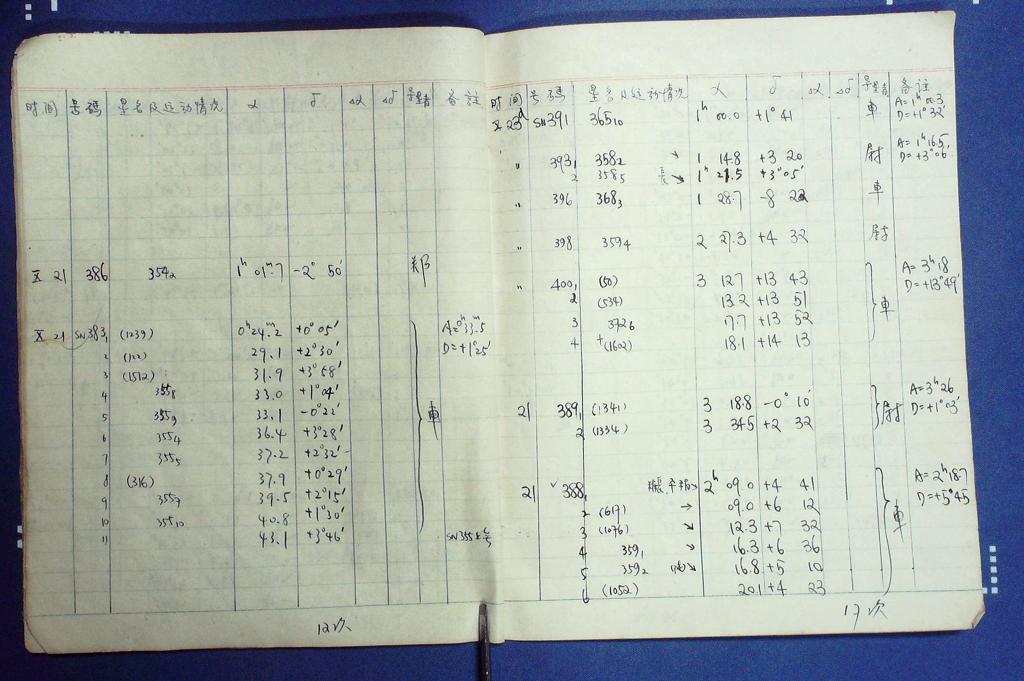 时间 号码 星名及运动情况 α δ Δα Δδ 寻星者 备註
X 21 386 354₂ 1ʰ 01ᵐ.7 -2° 50′ 郑
X 21 SN383₁ (1239) 0ʰ24ᵐ.2 +0° 05′ A=0ʰ33ᵐ.5
2 (122) 29.1 +2°30′ D=+1°25′
3 (1512) 31.9 +3°58′
4 355₈ 33.0 +1°04′
5 355₉ 33.1 -0°22′ 車
6 355₄ 36.4 +3°28′
7 355₅ 37.2 +2°32′
8 (316) 37.9 +0°29′
9 355₇ 39.5 +2°15′
10 355₁₀ 40.8 +1°30′
11 43.1 +3°46′ SN355
12次
时间 号碼 星名及运动情况 α δ Δα Δδ 寻星者 备注
X 23ᵈ SN391 365₁₀ 1ʰ 00.0 +1° 41 車 A=1ʰ00.3
D=+1°32′
" 393₁ 358₂ ↘ 1 14.8 +3 20 尉 A=1ʰ16.5
2 358₅ 長↘ 1ʰ 21.5 +3°05′ D=+3°06′
" 396 368₃ 1 28.7 -8 22 車
" 398 359₄ 2 27.3 +4 32 尉
" 400₁ (50) 3 12.7 +13 43 A=3ʰ18
2 (534) 13.2 +13 51 D=+13°49′
3 372₆ 17.7 +13 52 車
4 +(1602) 18.1 +14 13
21 389₁ (1341) 3 18.8 -0° 10′ 尉 A=3ʰ26
2 (1334) 3 34.5 +2 32 D=+1°03′
21 388₁ 2ʰ 09.0 +4 41 A=2ʰ18.7
2 (617) → 09.0 +6 12 D=+5°45
3 (1076) ↘ 12.3 +7 32 車
4 359₁ ↘ 16.3 +6 36
5 359₂ ↘ 16.8 +5 10
6 (1052) 20.1 +4 23
17次